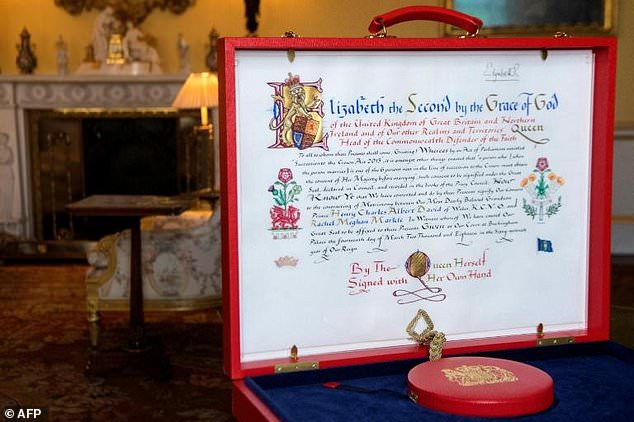 Elizabeth R
Elizabeth the Second by the Grace of God
of the United Kingdom of Great Britain and Northern
Ireland and of Our other Realms and Territories Queen
Head of the Commonwealth Defender of the Faith
To all to whom these Presents shall come Greeting! Whereas by an Act of Parliament entituled
Succession to the Crown Act 2013, it is amongst other things enacted that "a person who (when
the person marries) is one of the 6 persons next in the line of succession to the Crown must obtain
the consent of Her Majesty before marrying; such consent to be signified under the Great
Seal, declared in Council, and recorded in the books of the Privy Council" Now
Know Ye that We have consented and do by these Presents signify Our Consent
to the contracting of Matrimony between Our Most Dearly Beloved Grandson
Prince Henry Charles Albert David of Wales, K.C.V.O., and
Rachel Meghan Markle In Witness whereof We have caused Our
Great Seal to be affixed to these Presents Given at Our Court at Buckingham
Palace the fourteenth day of March Two Thousand and Eighteen in the Sixty-seventh
year of Our Reign
By The Queen Herself
Signed with Her Own Hand
© AFP